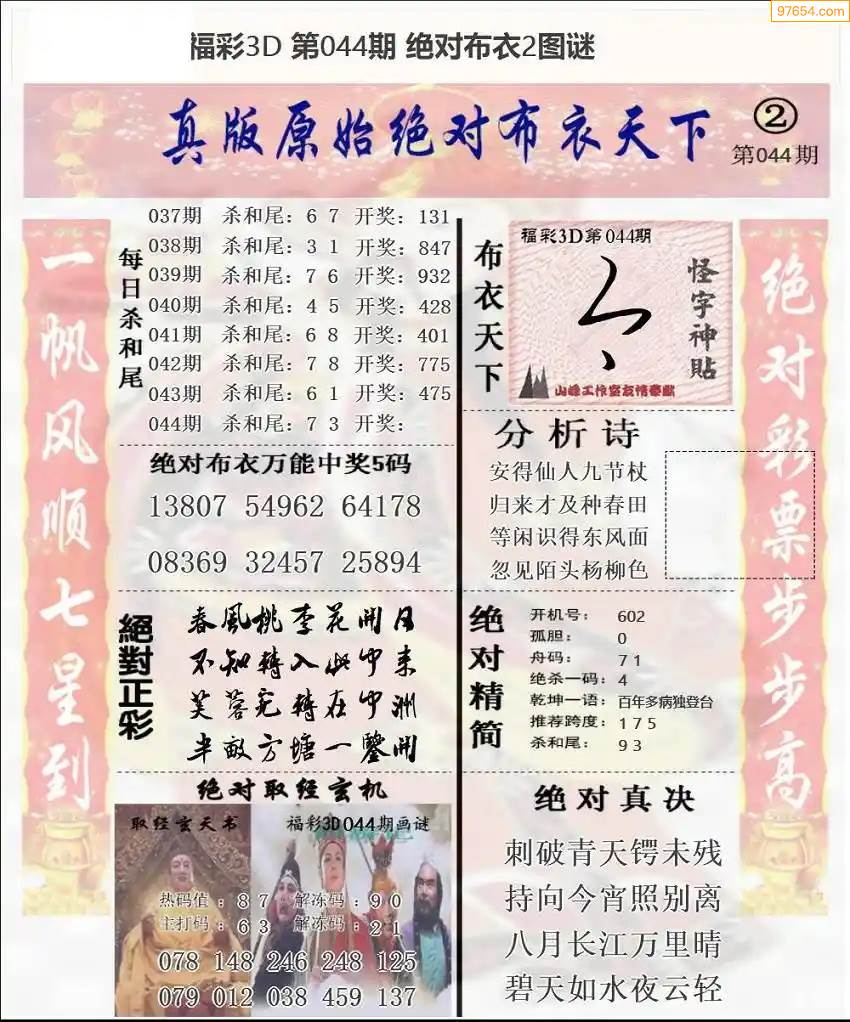 97654.com
福彩3D 第044期 绝对布衣2图谜
真版原始绝对布衣天下
②
第044期
一帆风顺七星到
每日杀和尾
037期 杀和尾：6 7 开奖：131
038期 杀和尾：3 1 开奖：847
039期 杀和尾：7 6 开奖：932
040期 杀和尾：4 5 开奖：428
041期 杀和尾：6 8 开奖：401
042期 杀和尾：7 8 开奖：775
043期 杀和尾：6 1 开奖：475
044期 杀和尾：7 3 开奖：
绝对布衣万能中奖5码
13807 54962 64178
08369 32457 25894
絕對正彩
春風桃李花開日
不知轉入此中来
芙蓉宛轉在中洲
半畝方塘一鑒開
绝对取经玄机
取经玄天书
福彩3D044期画谜
热码值：8 7 解冻码：9 0
主打码：6 3 解冻码：2 1
078 148 246 248 125
079 012 038 459 137
布衣天下
福彩3D第044期
怪字神貼
山峰工作室友情奉献
分析诗
安得仙人九节杖
归来才及种春田
等闲识得东风面
忽见陌头杨柳色
绝对精简
开机号：602
孤胆：0
舟码：7 1
绝杀一码：4
乾坤一语：百年多病独登台
推荐跨度：1 7 5
杀和尾：9 3
绝对真决
刺破青天锷未残
持向今宵照别离
八月长江万里晴
碧天如水夜云轻
绝对彩票步步高